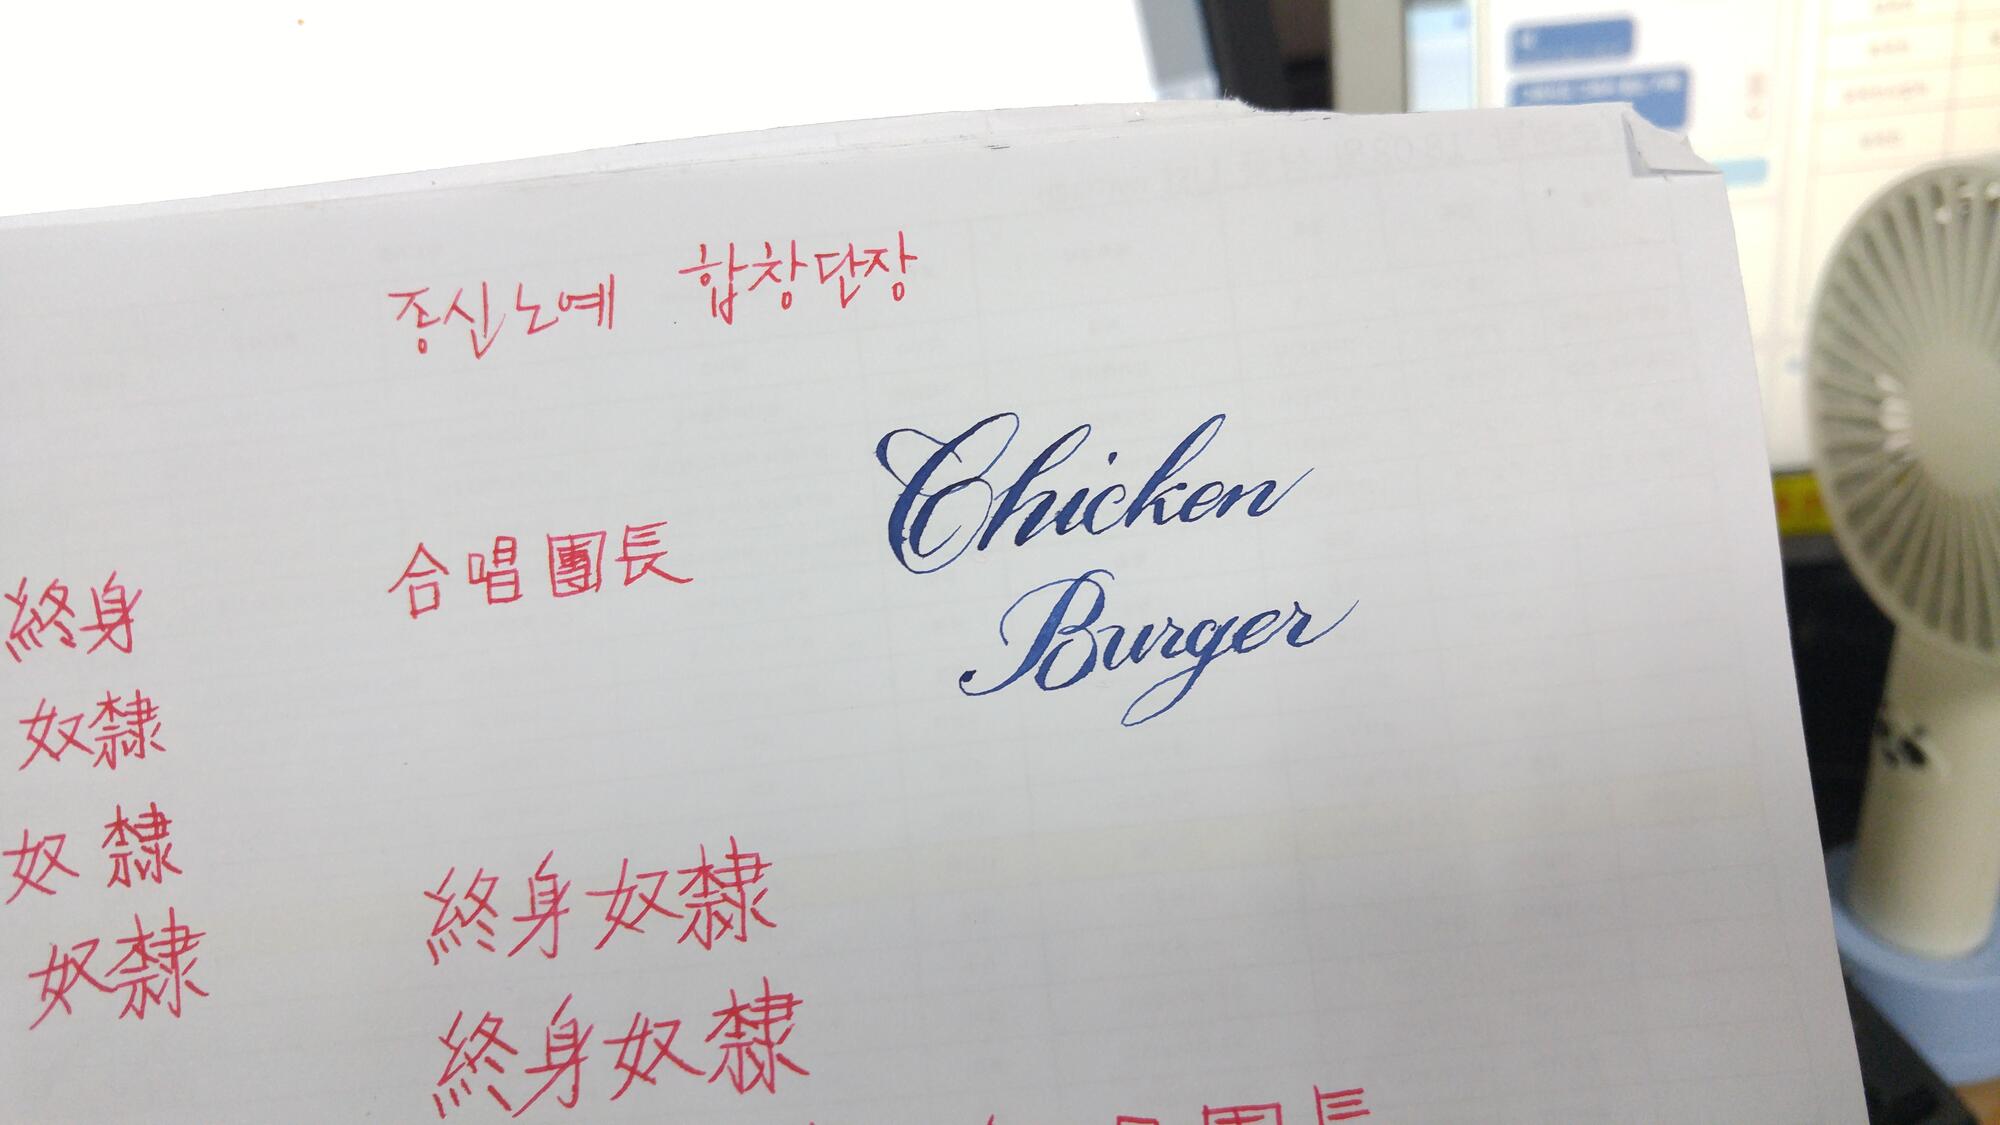 종신노예 합창단장
Chicken
Burger
合唱團長
終身
奴隸
奴隸
奴隸
終身奴隸
終身奴隸
團長